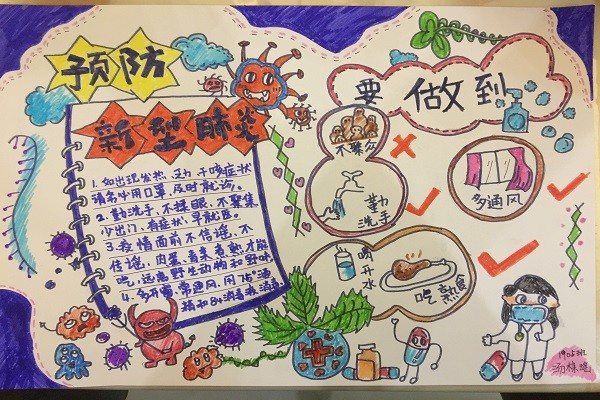 预防
新型肺炎
1.如出现发热、乏力、干咳症状
请务必用口罩,及时就诊。
2.勤洗手,不揉眼,不聚集
少出门,有症状,早就医。
3.疫情面前不信谣,不
传谣,肉蛋、青菜煮熟才能
吃,远离野生动物和野味
4.多开窗,常通风,用75°酒
精和84消毒
要做到
不聚会
勤
洗手
多通风
喝开水
吃熟食
1905班